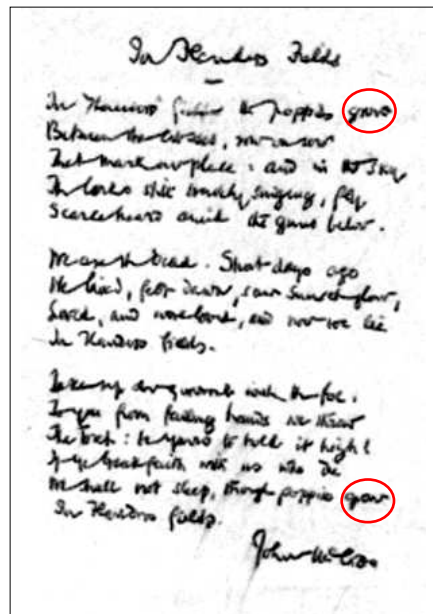 In Flanders Fields
In Flanders' fields the poppies grow
Between the crosses, row on row
That mark our place: and in the sky
The larks still bravely singing, fly
Scarce heard amid the guns below.
We are the dead. Short days ago
We lived, felt dawn, saw sunset glow,
Loved, and were loved, and now we lie
In Flanders fields.
Take up our quarrel with the foe:
To you from failing hands we throw
The torch: be yours to hold it high!
If ye break faith with us who die
We shall not sleep, though poppies grow
In Flanders fields.
John McCrae